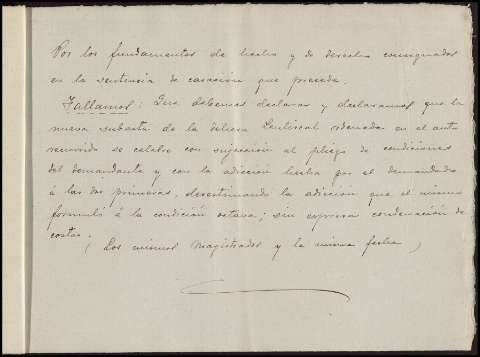 Por los fundamentos de hecho y de derecho consignados
en la sentencia de casación que precede.
Fallamos: Que debemos declarar y declaramos que la
nueva subasta de la dehesa ordenada en el auto
recurrido se celebre con sujeción al pliego de condiciones
del demandante y con la adición hecha por el demandado
á las dos primeras, desestimando la adición que el mismo
formuló á la condición octava; sin expresa condenación de
costas. (Los mismos Magistrados y la misma fecha)